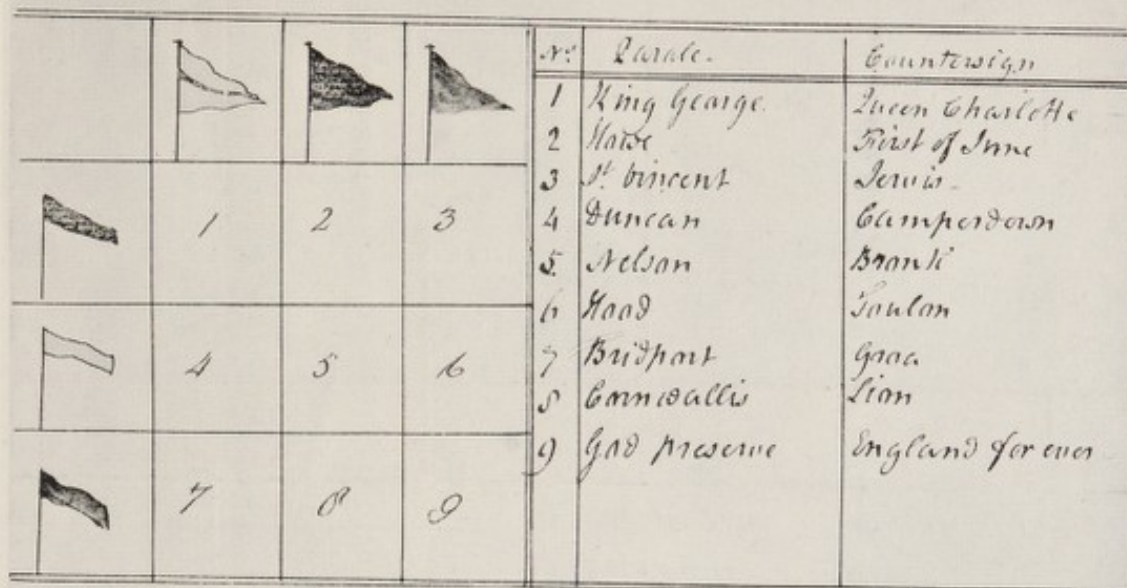 No. Parole. Countersign
1 King George. Queen Charlotte
2 Howe First of June
3 St. Vincent Jervis
4 Duncan Camperdown
5. Nelson Bronti
6 Hood Toulon
7 Bridport Groa
8 Cornwallis Lion
9 God preserve England for ever
1 2 3
4 5 6
7 8 9